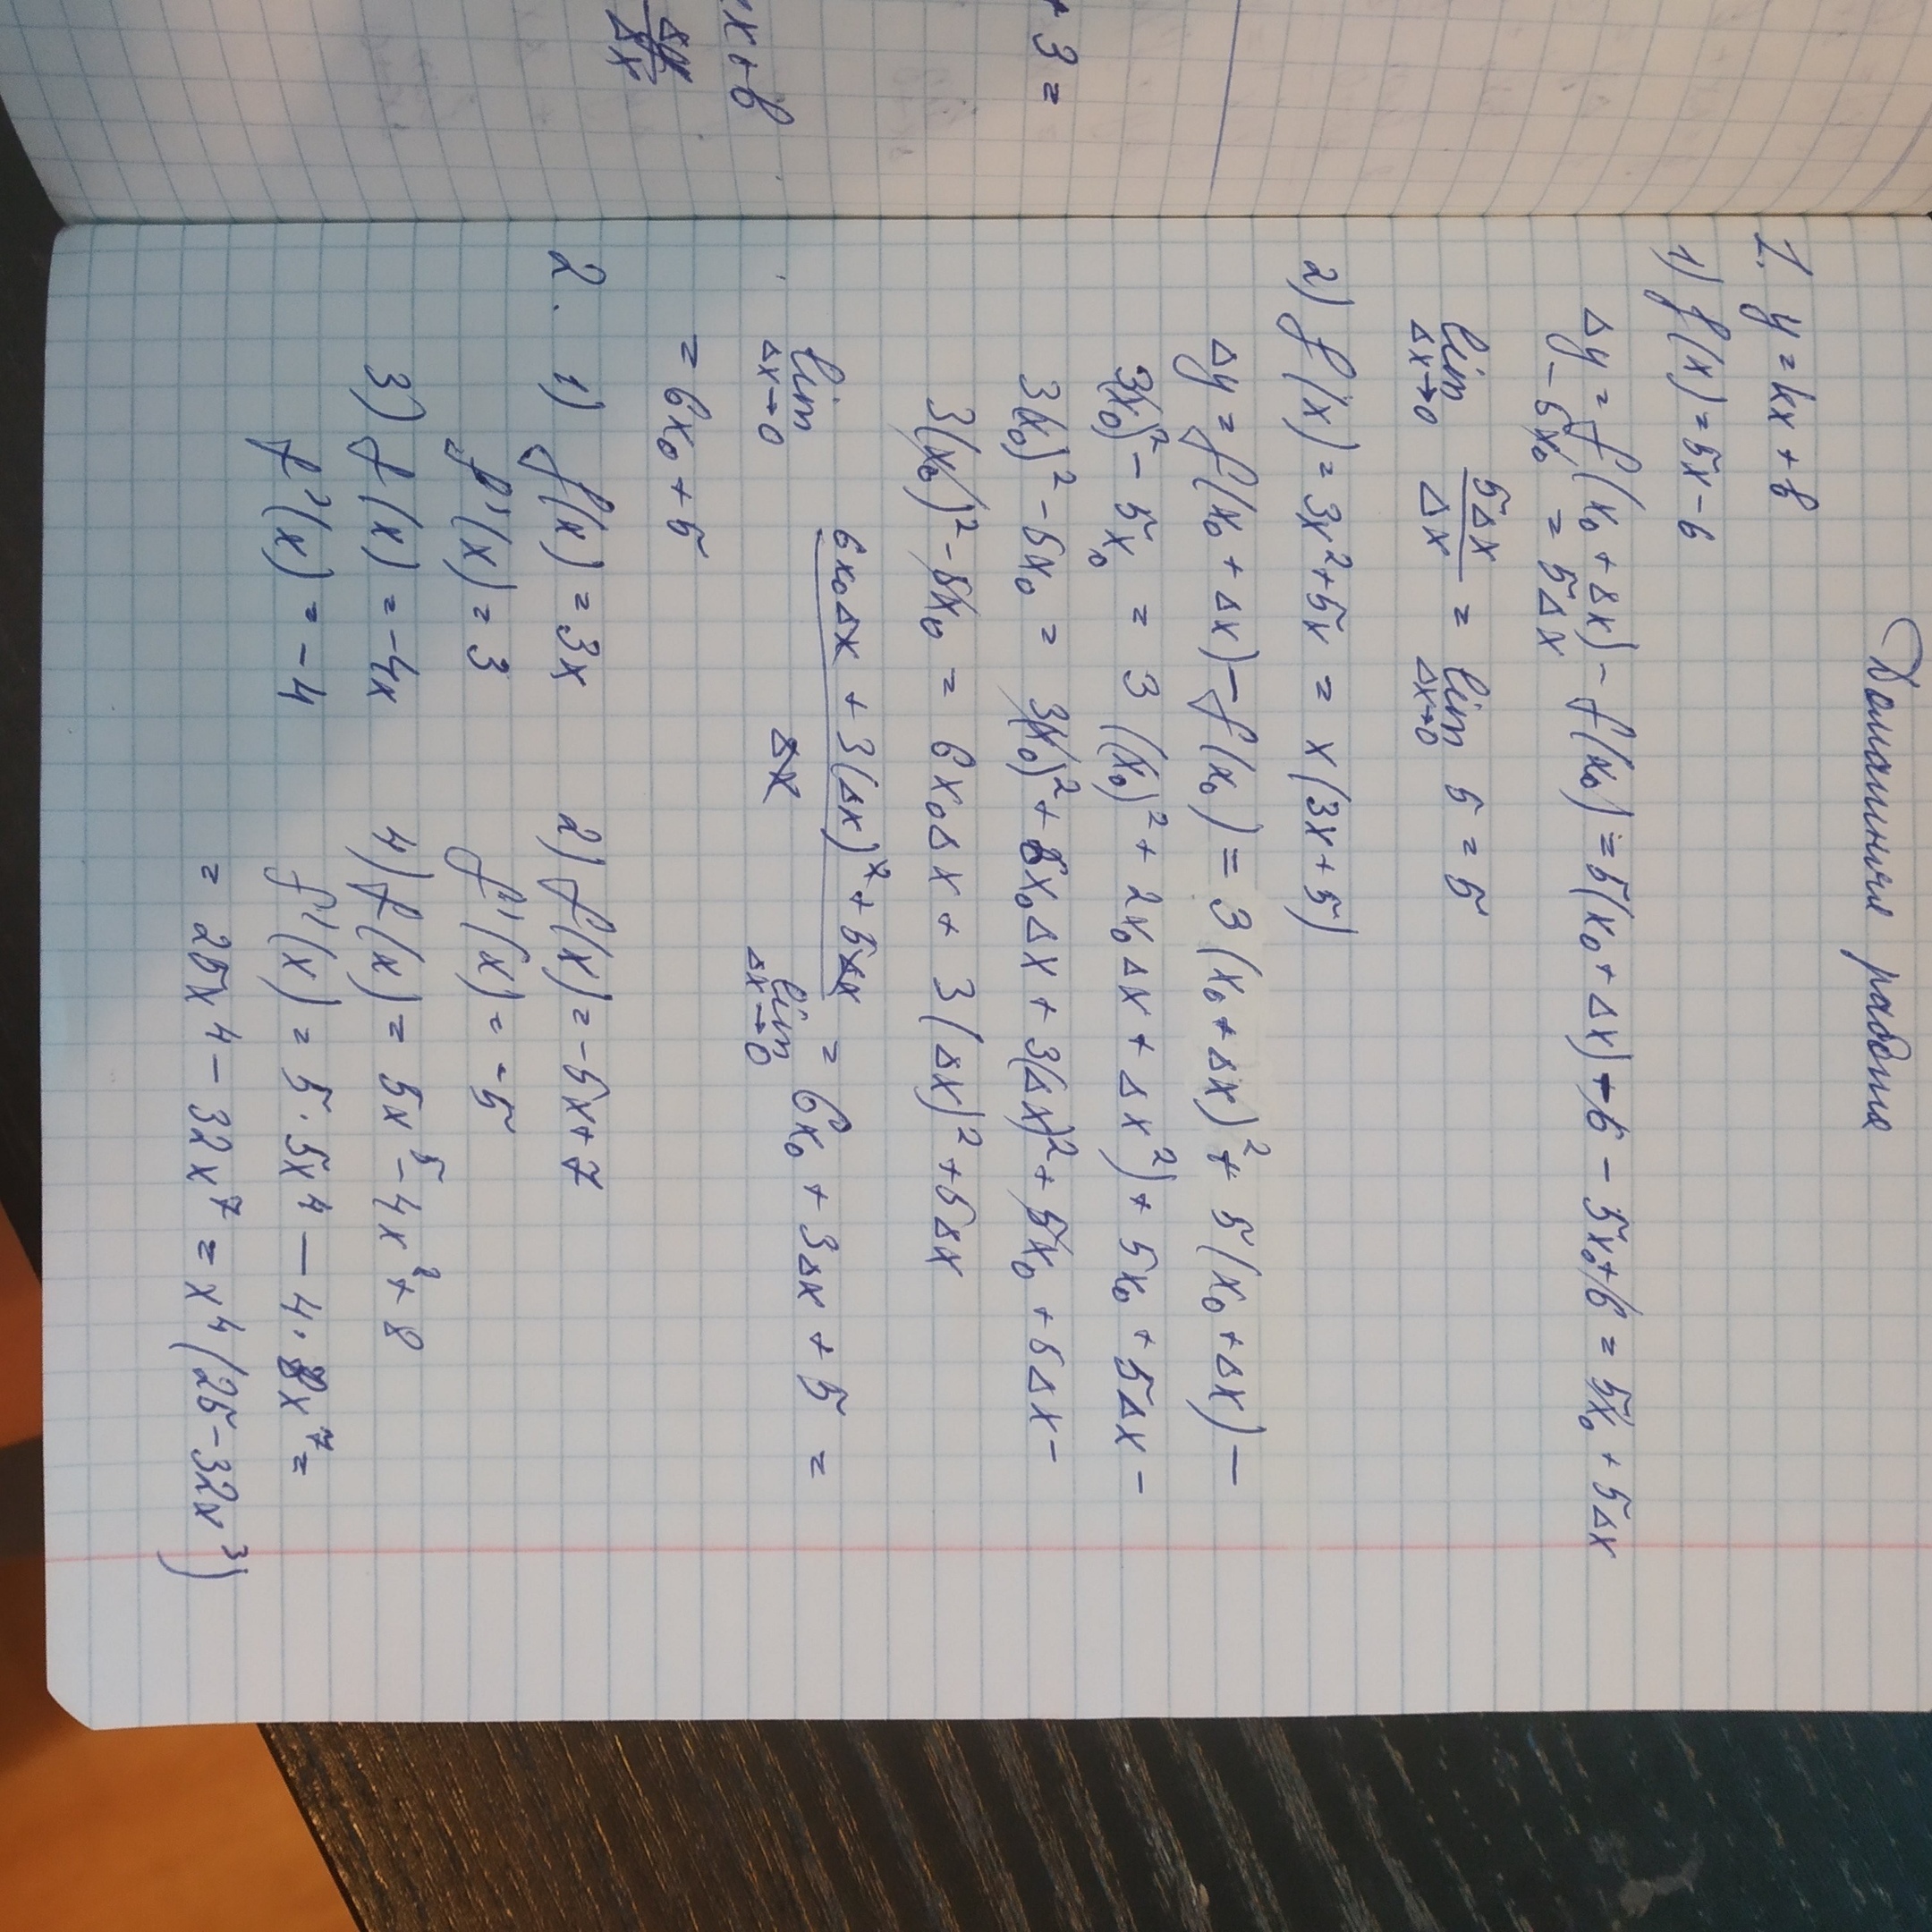 + 3 =
x + b
Δy
Δx
Домашняя работа
1. y = kx + b
1) f(x) = 5x - 6
Δy = f(x₀ + Δx) - f(x₀) = 5(x₀ + Δx) - 6 - 5x₀ + 6 = 5x₀ + 5Δx
- 5x₀ = 5Δx
lim Δx→0 5Δx/Δx = lim Δx→0 5 = 5
2) f(x) = 3x² + 5x = x(3x + 5)
Δy = f(x₀ + Δx) - f(x₀) = 3(x₀ + Δx)² + 5(x₀ + Δx) -
3(x₀)² - 5x₀ = 3((x₀)² + 2x₀Δx + Δx²) + 5x₀ + 5Δx -
3(x₀)² - 5x₀ = 3(x₀)² + 6x₀Δx + 3(Δx)² + 5x₀ + 5Δx -
3(x₀)² - 5x₀ = 6x₀Δx + 3(Δx)² + 5Δx
lim Δx→0 6x₀Δx + 3(Δx)² + 5Δx/Δx = lim Δx→0 6x₀ + 3Δx + 5 =
= 6x₀ + 5
2. 1) f(x) = 3x 2) f(x) = -5x + 7
f'(x) = 3 f'(x) = -5
3) f(x) = -4x 4) f(x) = 5x⁵ - 4x⁸ + 8
f'(x) = -4 f'(x) = 5 · 5x⁴ - 4 · 8x⁷ =
= 25x⁴ - 32x⁷ = x⁴(25 - 32x³)